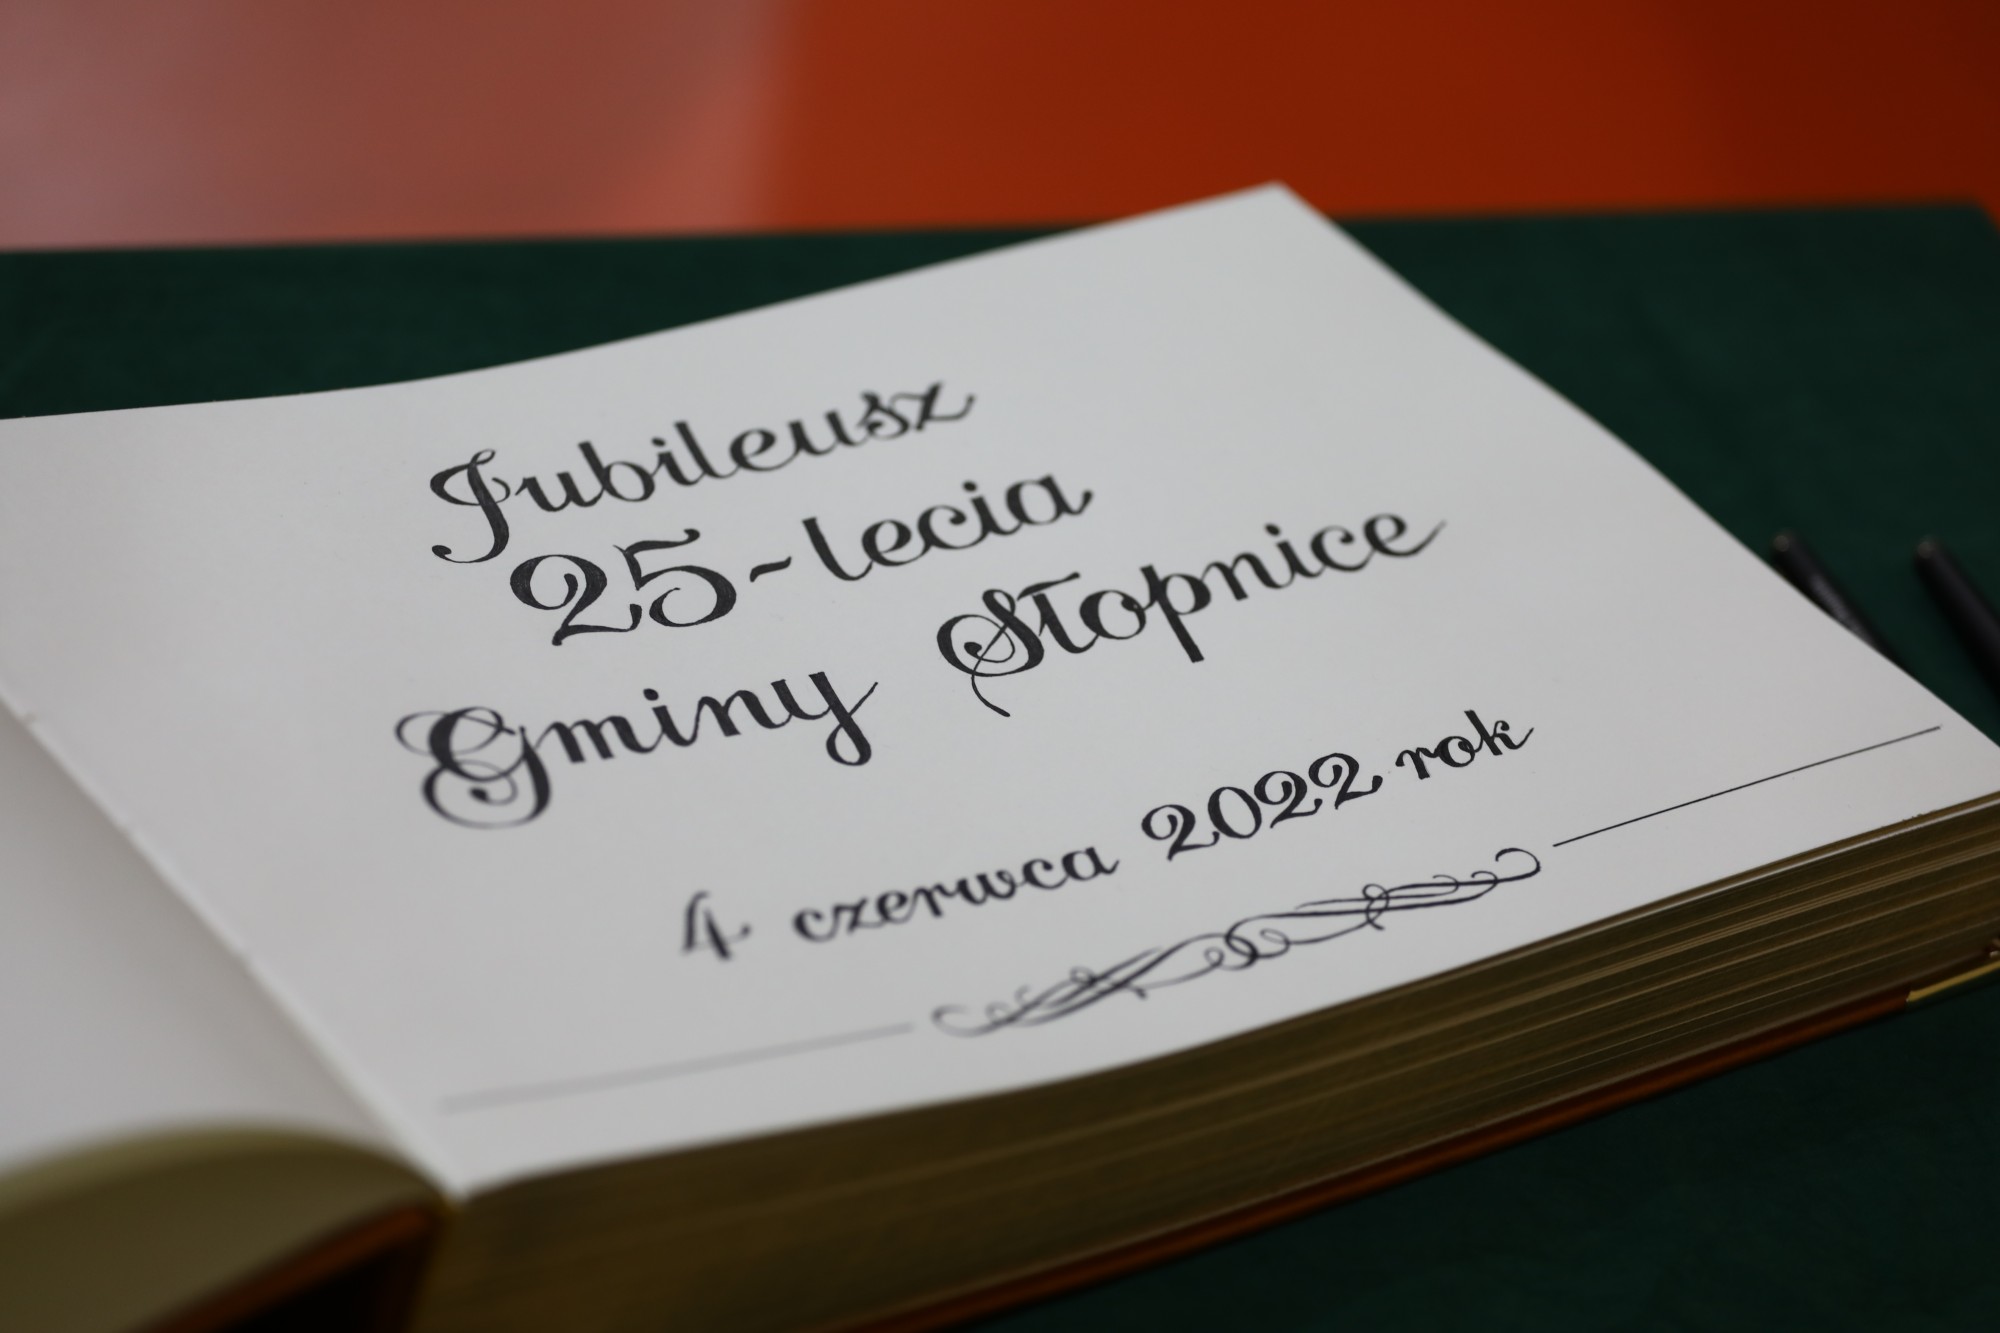 Jubileusz
25-lecia
Gminy Słopnice
4 czerwca 2022 rok